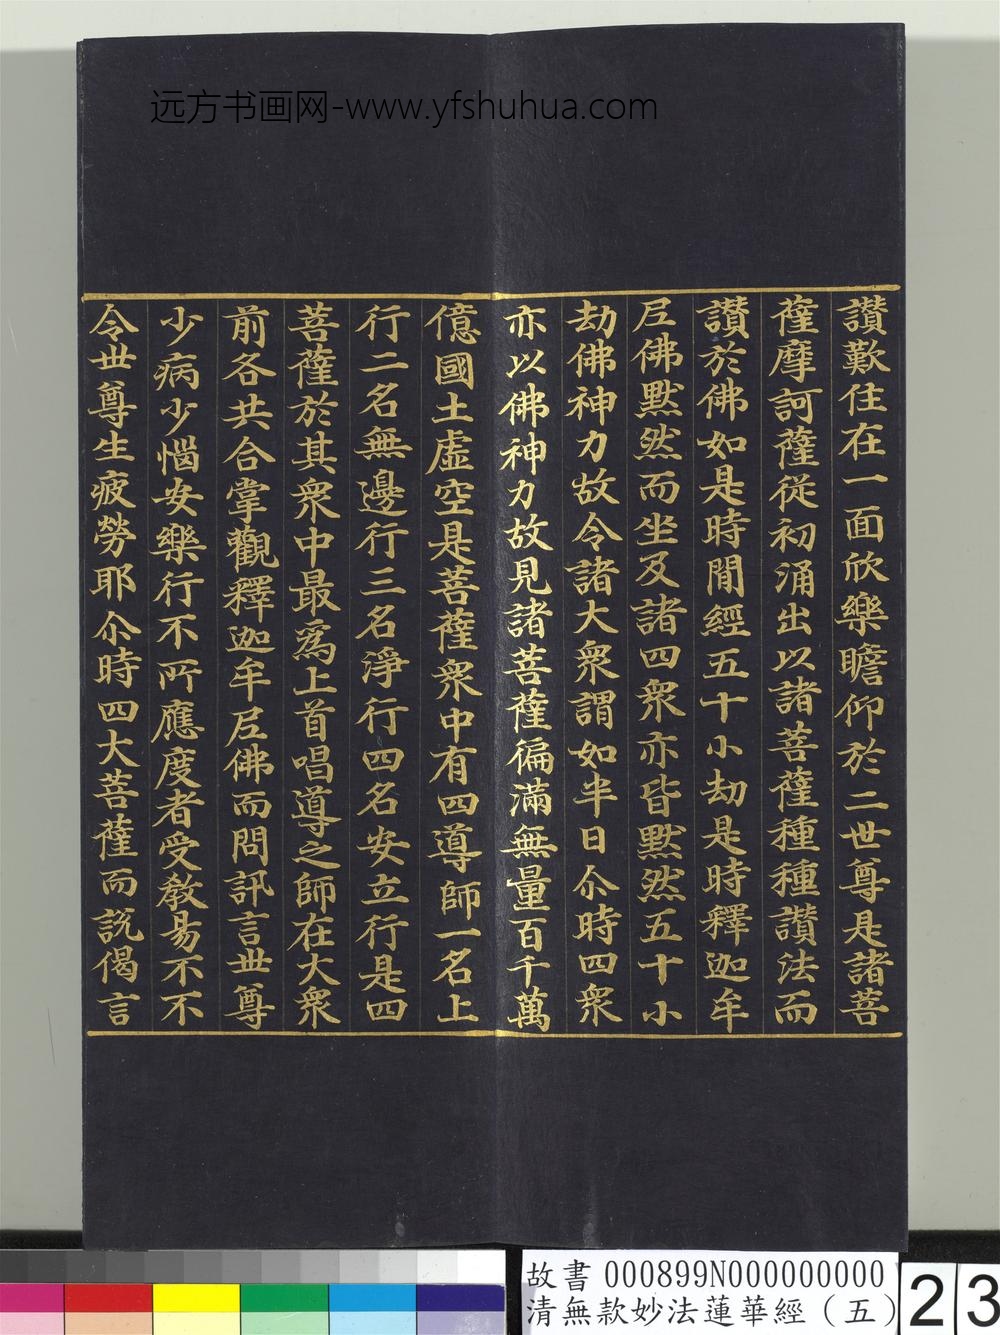 远方书画网-www.yfshuhua.com
讚歎住在一面欣樂瞻仰於二世尊是諸菩
薩摩訶薩從初涌出以諸菩薩種種讚法而
讚於佛如是時間經五十小劫是時釋迦牟
尼佛默然而坐及諸四衆亦皆默然五十小
劫佛神力故令諸大衆謂如半日尒時四衆
亦以佛神力故見諸菩薩徧滿無量百千萬
億國土虛空是菩薩衆中有四導師一名上
行二名無邊行三名淨行四名安立行是四
菩薩於其衆中最爲上首唱導之師在大衆
前各共合掌觀釋迦牟尼佛而問訊言世尊
少病少惱安樂行不所應度者受教易不不
令世尊生疲勞耶尒時四大菩薩而說偈言
故書 000899N000000000
清無款妙法蓮華經（五）
23